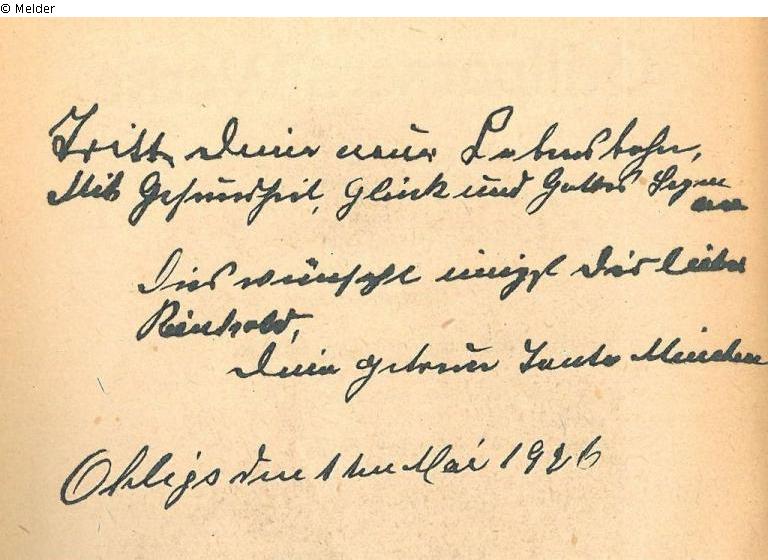 © Melder
Tritt Deine neue Lebensbahn,
Mit Gesundheit, Glück und Gottes Segen
an
Dies wünscht innigst Dir lieber
Reinhold,
Deine getreue Tante Minchen
Ohligs den 1ten Mai 1926